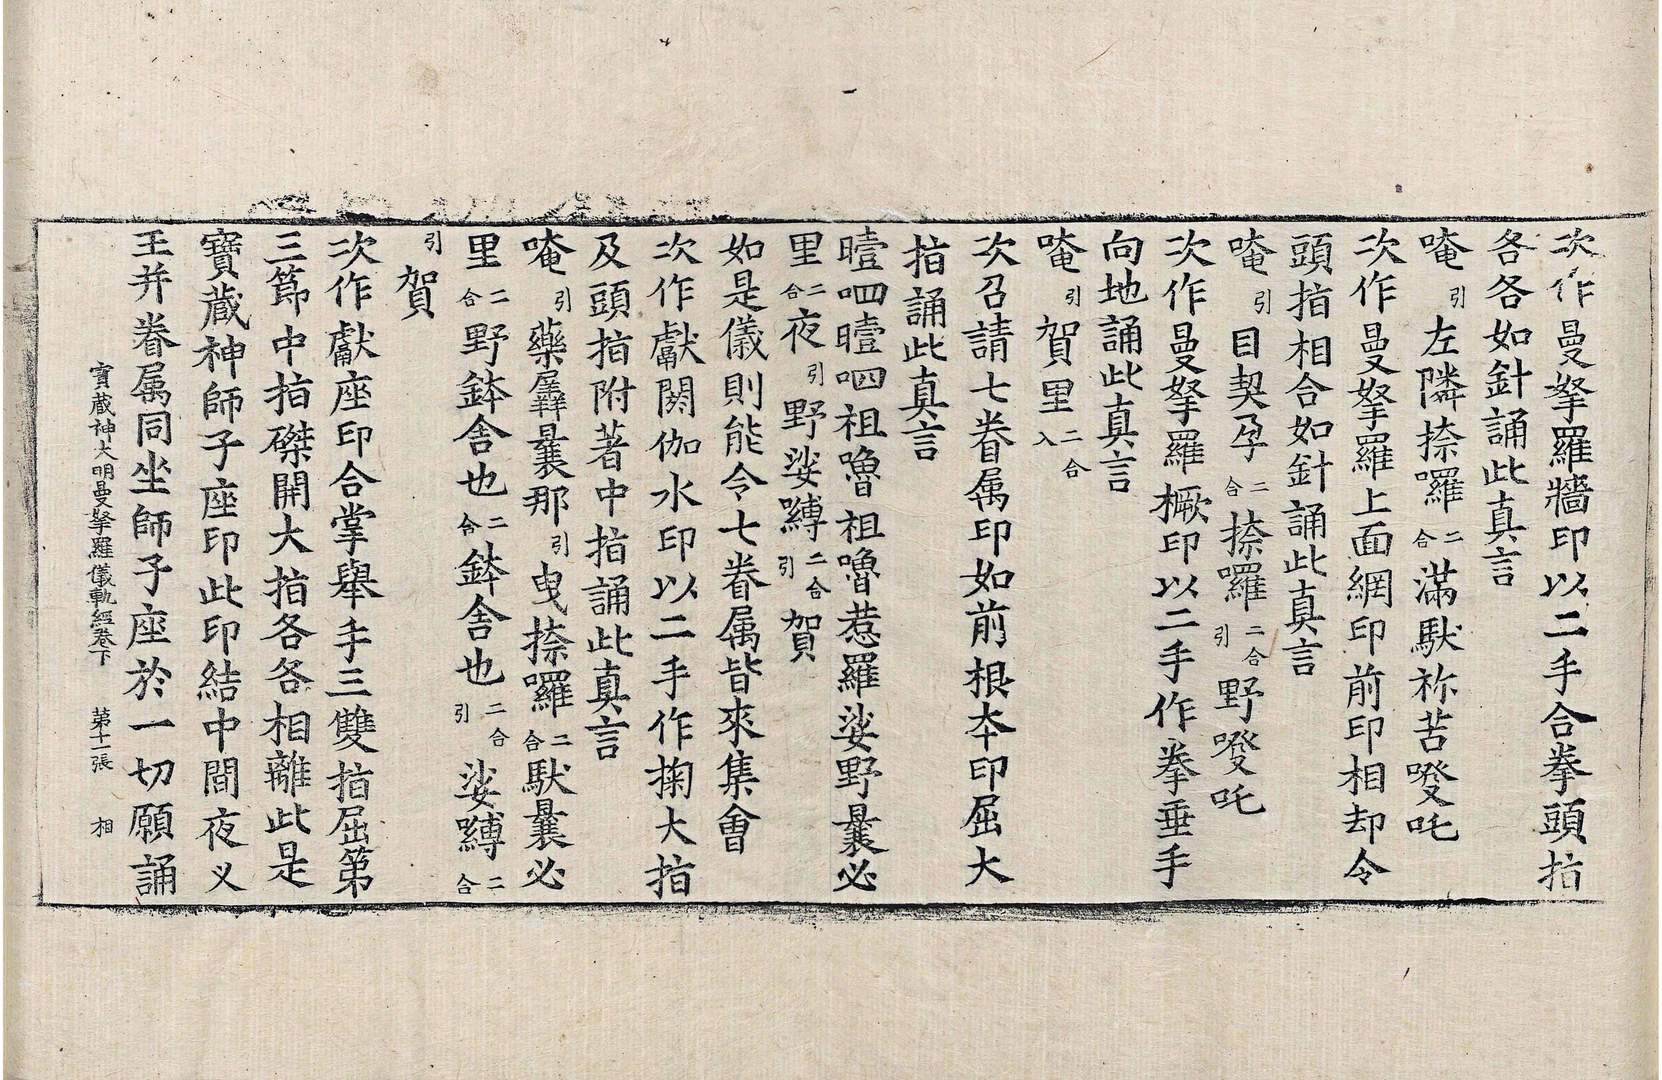 次作曼拏羅牆印以二手合拳頭指
各各如針誦此真言
唵引左隣捺囉二合滿䭾祢苦㗶吒
次作曼拏羅上面網印前印相却令
頭指相合如針誦此真言
唵引目契孕二合捺囉二合引野㗶吒
次作曼拏羅橛印以二手作拳垂手
向地誦此真言
唵引賀里二合入
次召請七眷属印如前根夲印屈大
指誦此真言
曀呬曀呬祖嚕祖嚕惹羅娑野曩必
里二合夜引野娑嚩二合引賀
如是儀則能令七眷属皆來集會
次作獻閼伽水印以二手作掬大指
及頭指附著中指誦此真言
唵引藥曩那引曵捺囉二合䭾曩必
里二合野鉢舍也二合鉢舍也二合引娑嚩二合
引賀
次作獻座印合掌舉手三雙指屈第
三節中指磔開大指各各相離此是
寶藏神師子座印此印結中間夜义
王并眷属同坐師子座於一切願誦
寶藏神大明曼拏羅儀軌經卷下 第十一張 相